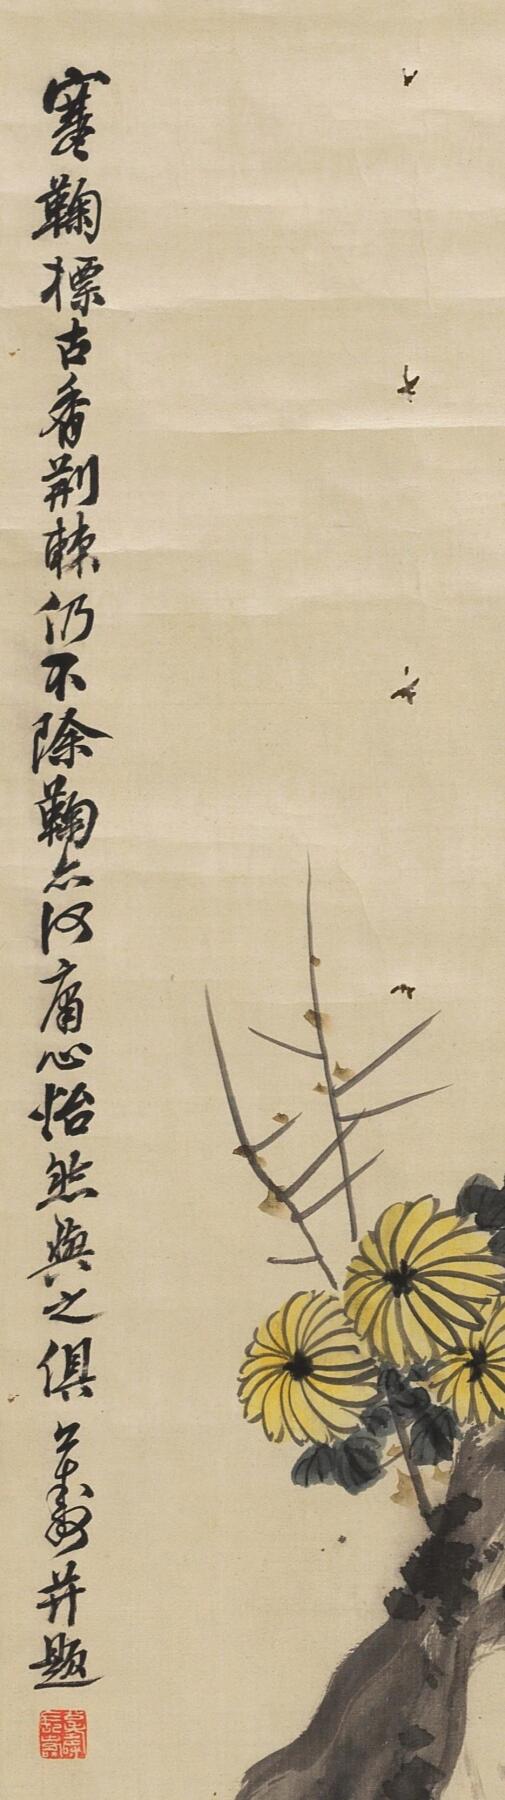 寒鞠標古香荆棘仍不除鞠亦何庸心怡然與之俱 公壽并題